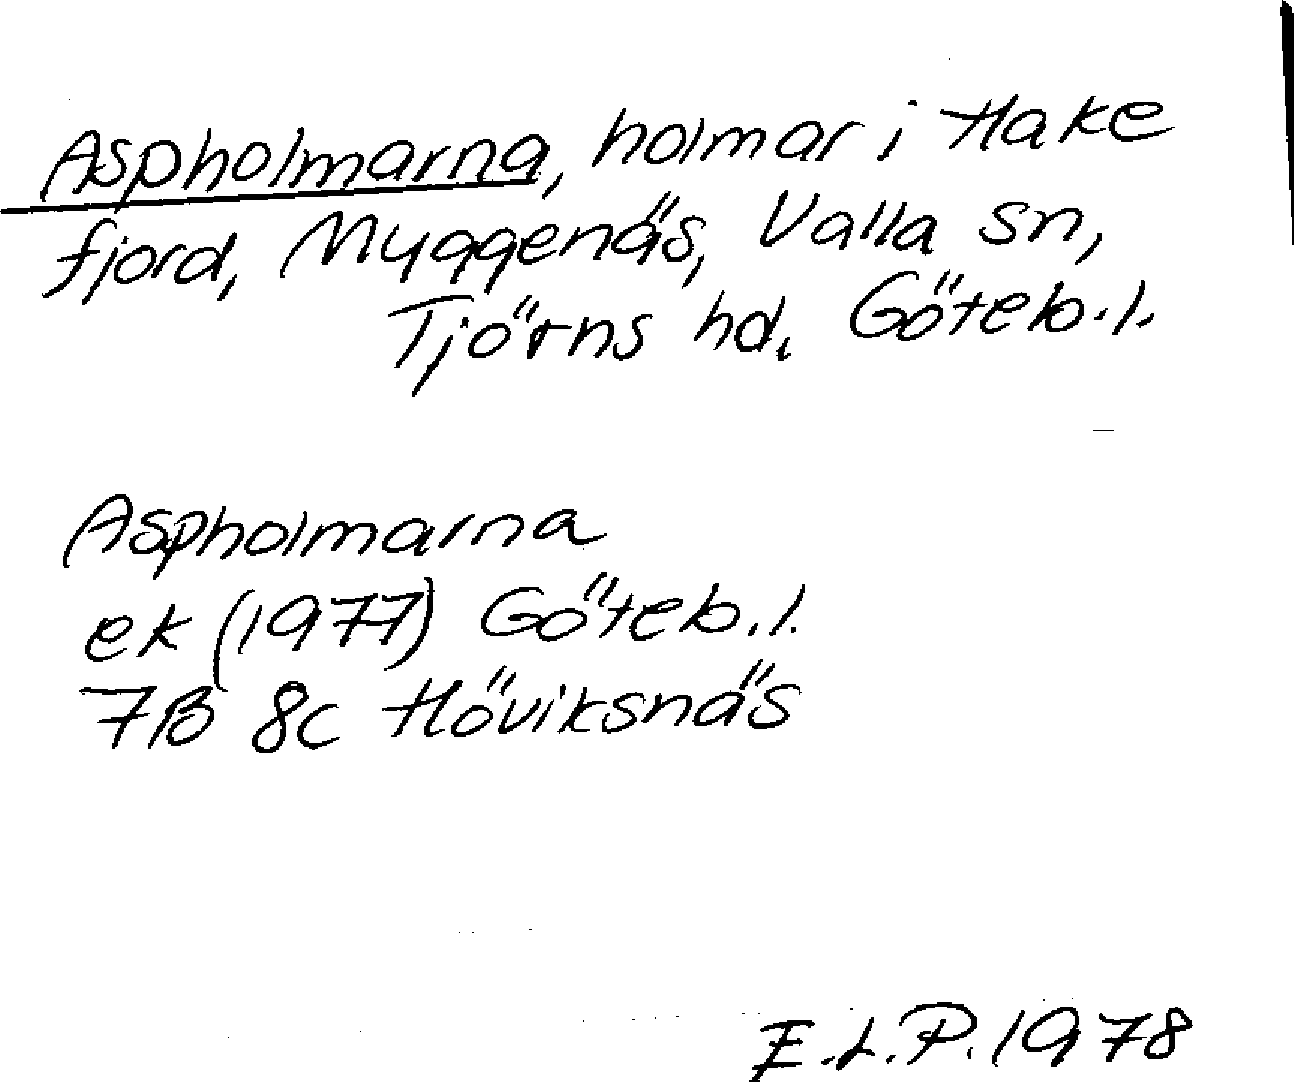 Aspholmarna, holmar i Hake
fjord, Myggenäs, Valla sn,
Tjörns hd. Göteb.l.
Aspholmarna
ek (1977) Göteb.l.
7B 8c Höviksnäs
E.L.P. 1978